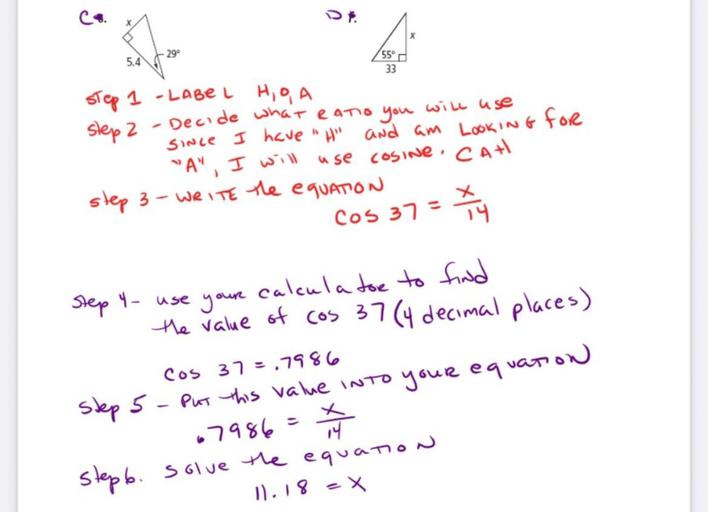 C.
x
5.4
29°
D.
x
55°
33
Step 1 - LABEL H, O, A
Step 2 - Decide what RATIO you will use
SINCE I have "H" and am LOOKING for
"A", I will use cosine. CAH
Step 3 - WRITE the eQUATION
COS 37 = x/14
Step 4 - use your calculator to find
the value of cos 37 (4 decimal places)
cos 37 = .7986
Step 5 - PUT this value INTO your equATION
.7986 = x/14
Step 6. Solve the equATION
11.18 = x